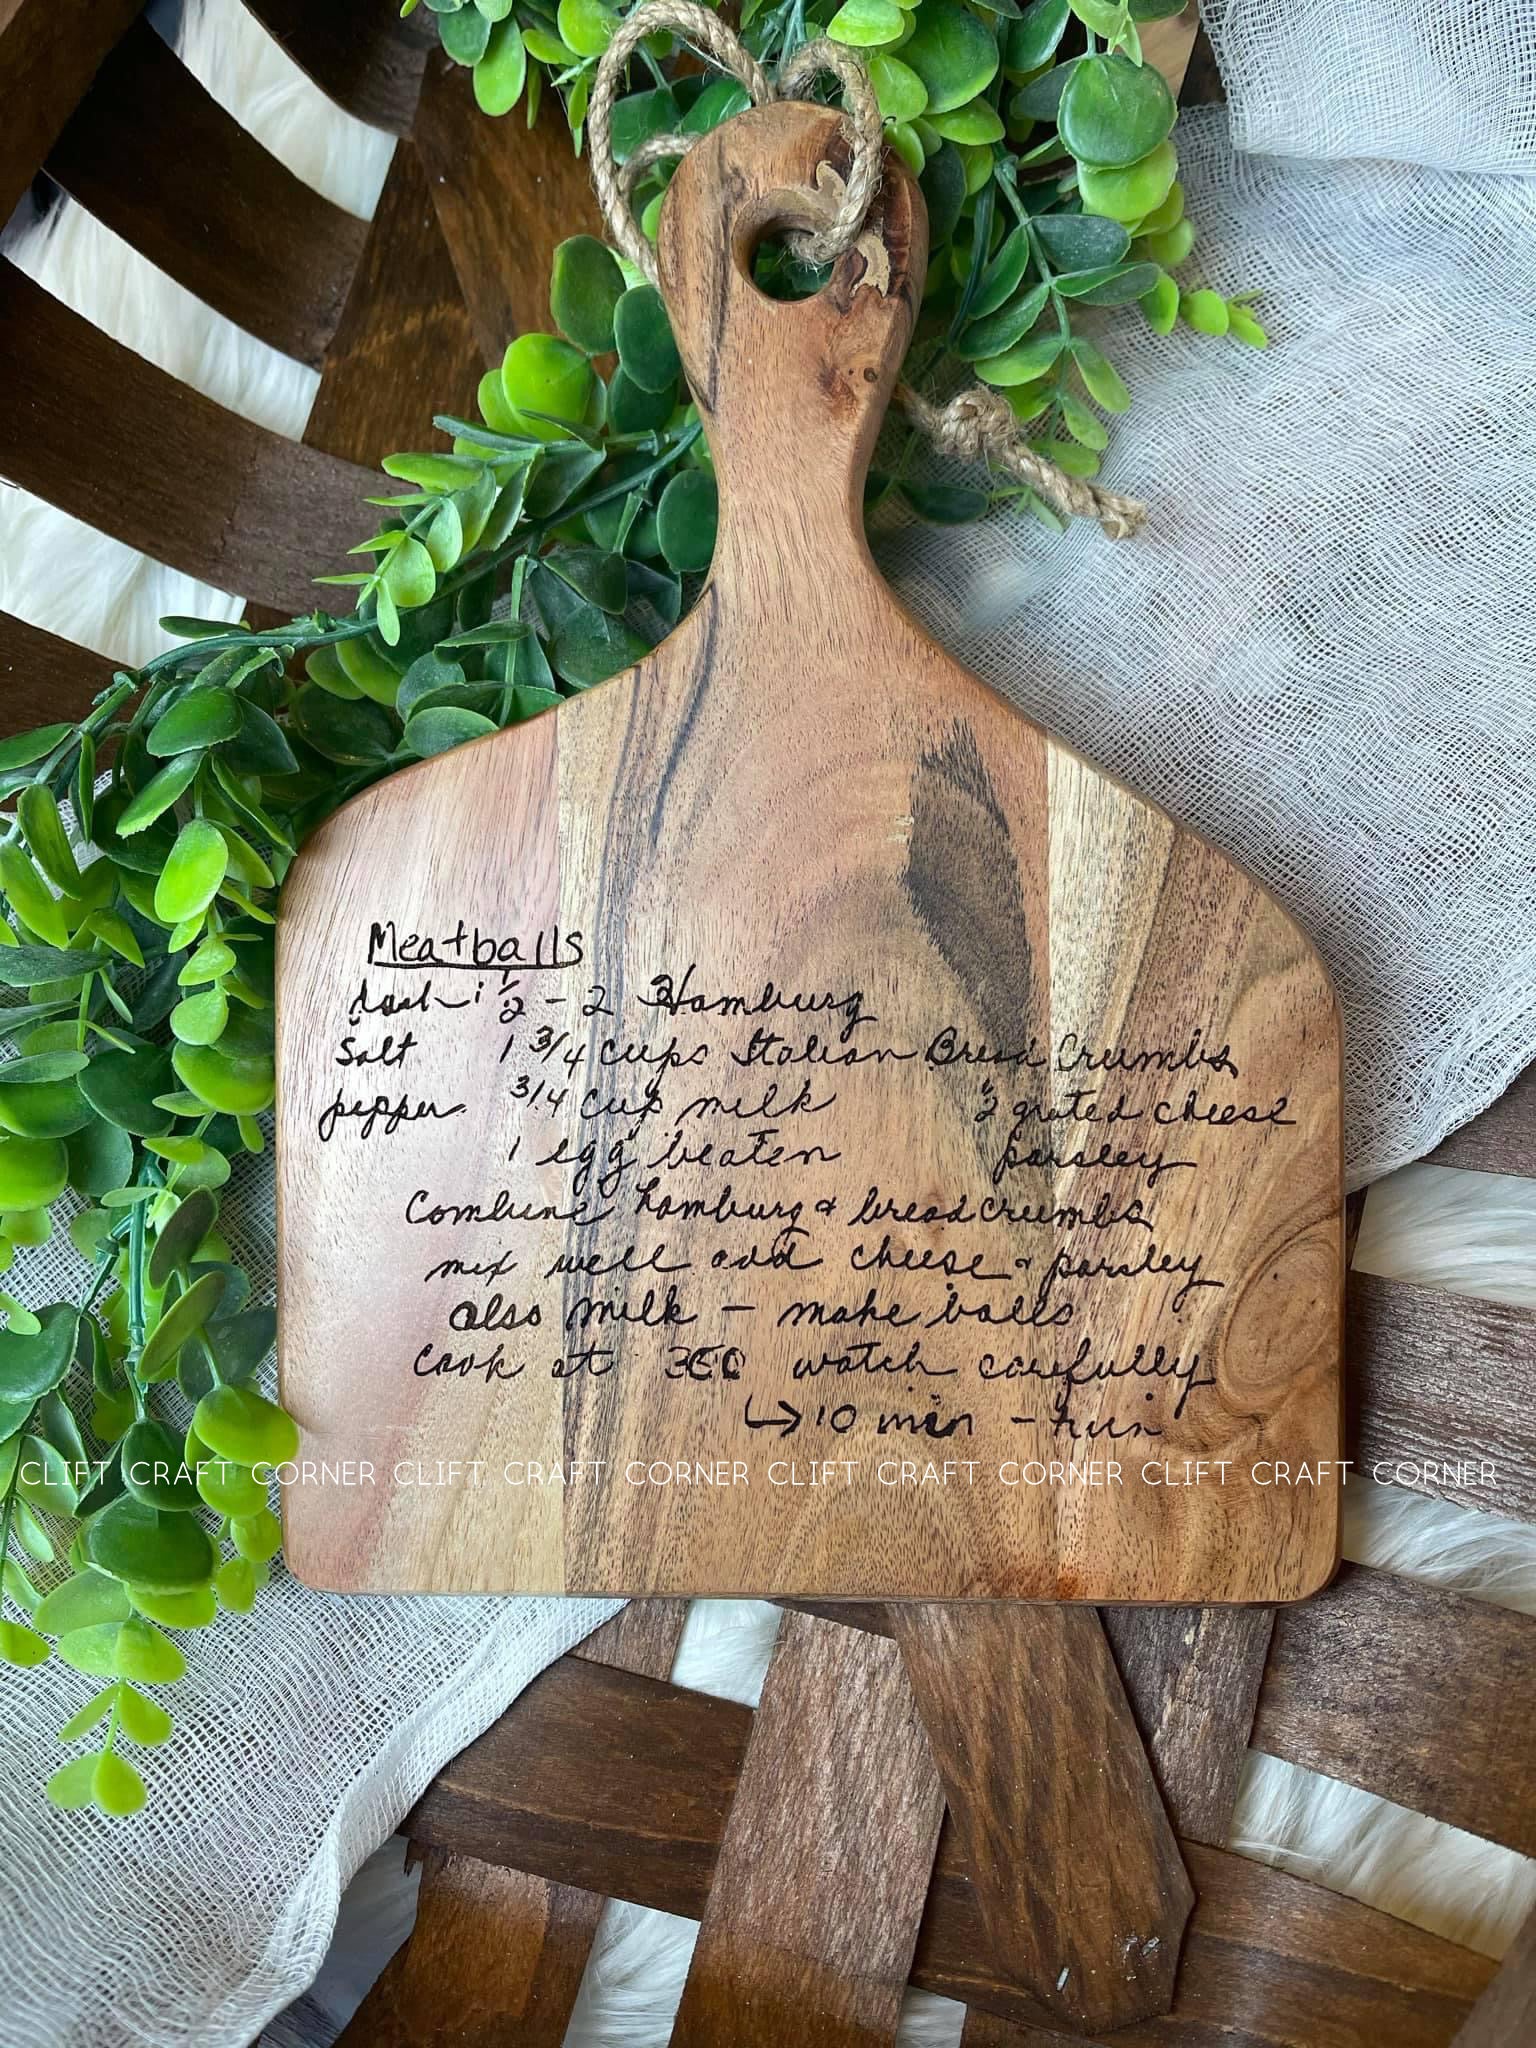 Meatballs
dash: 1/2 - 2 Hamburg
Salt 1 3/4 cups Italian Bread Crumbs
pepper 3/4 cup milk 1/2 grated cheese
1 egg beaten parsley
Combine hamburg & breadcrumbs
mix well add cheese & parsley
also milk - make balls
Cook at 350 watch carefully
→ 10 min - turn
CLIFT CRAFT CORNER CLIFT CRAFT CORNER CLIFT CRAFT CORNER CLIFT CRAFT CORNER